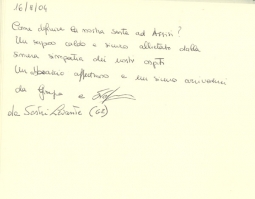 16/8/04
Come definire la nostra sosta ad Assisi?
Un riposo caldo e sicuro allietato dalla
sincera simpatia dei nostri ospiti
Un abbraccio affettuoso e un sicuro arrivederci
da Giorgio e
da Sestri Levante (GE)